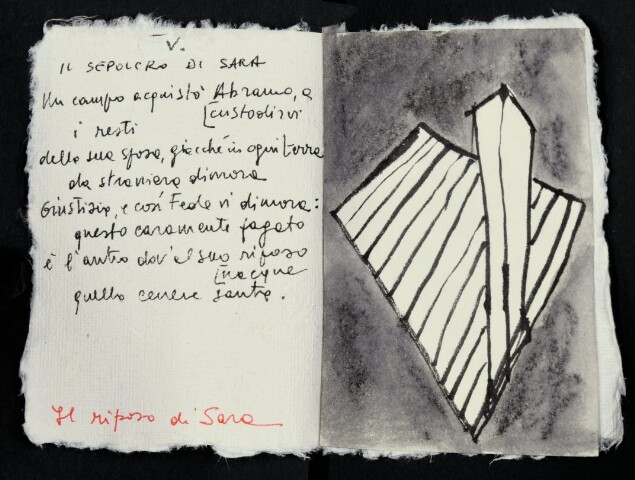 V.
IL SEPOLCRO DI SARA
Un campo acquistò Abramo, a
[custodirvi
i resti
della sua sposa, giacché in ogni terra
da straniera dimora
Giustizia, e così Fede vi dimora:
questo caramente pagato
è l'antro dov'al suo riposo
[nacque
quella cenere santa.
Il riposo di Sara